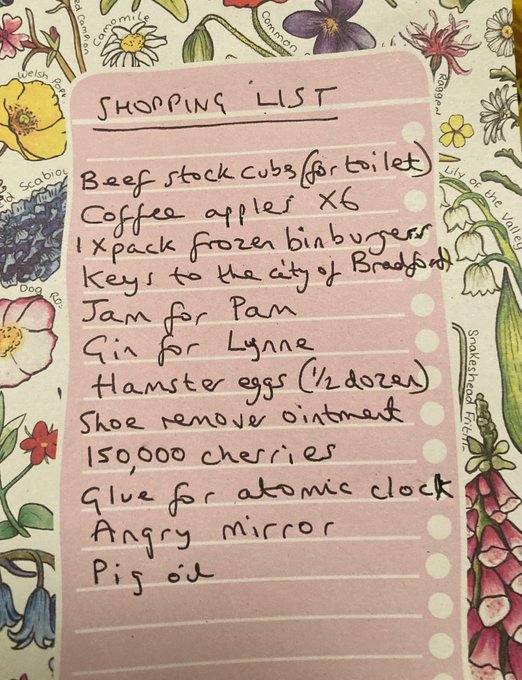 Campion
Chamomile
Common
Welsh Pop
Ragge
Scabiou
Lily of the Valley
Dog Ro
Snakeshead Fritill
SHOPPING LIST
Beef stock cubs (for toilet)
Coffee apples X6
1 X pack frozen binburgers
Keys to the city of Bradford
Jam for Pam
Gin for Lynne
Hamster eggs (1/2 dozen)
Shoe remover ointment
150,000 cherries
Glue for atomic clock
Angry mirror
Pig oil